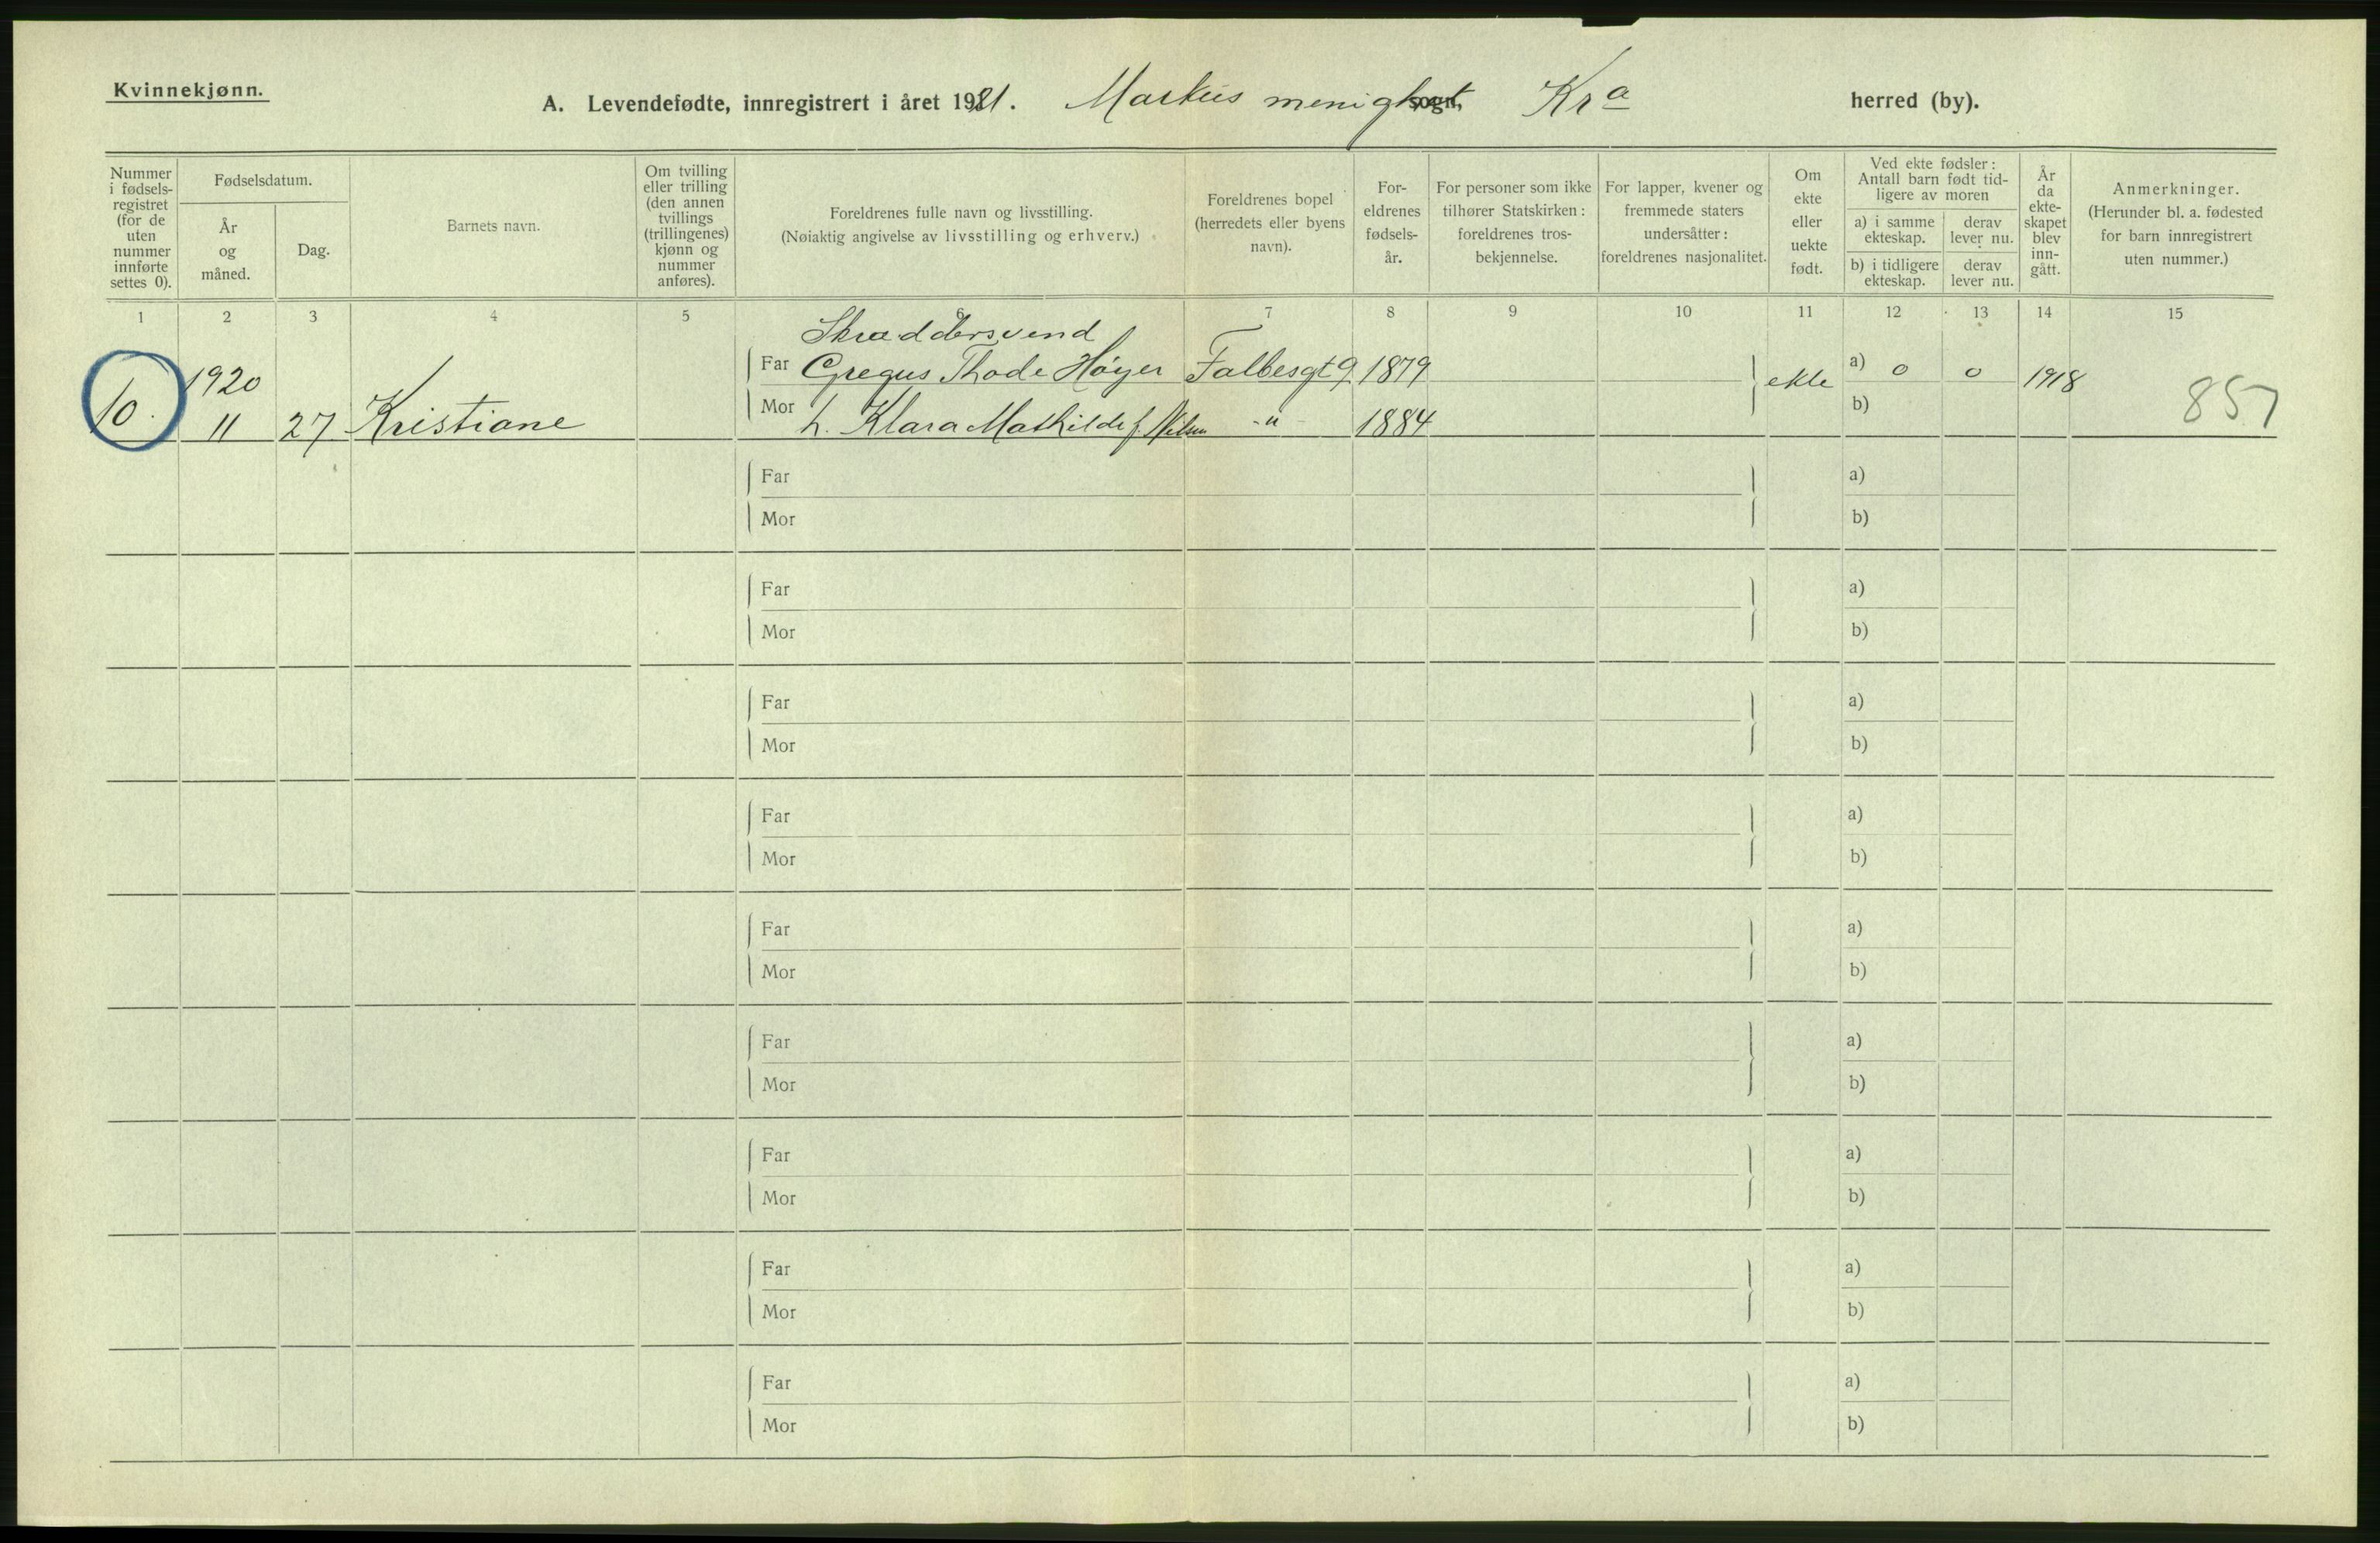 Kvinnekjønn.
A. Levendefødte, innregistrert i året 1921. Markus menighet sogn, Kra herred (by).
Nummer i fødsels- registret (for de uten nummer innførte settes 0).
Fødselsdatum.
År og måned.
Dag.
Barnets navn.
Om tvilling eller trilling (den annen tvillings (trillingenes) kjønn og nummer anføres).
Foreldrenes fulle navn og livsstilling.
(Nøiaktig angivelse av livsstilling og erhverv.)
Foreldrenes bopel (herredets eller byens navn).
For- eldrenes fødsels- år.
For personer som ikke tilhører Statskirken: foreldrenes tros- bekjennelse.
For lapper, kvener og fremmede staters undersåtter: foreldrenes nasjonalitet.
Om ekte eller uekte født.
Ved ekte fødsler: Antall barn født tid- ligere av moren
a) i samme ekteskap.
derav lever nu.
b) i tidligere ekteskap.
derav lever nu.
År da ekte- skapet blev inn- gått.
Anmerkninger.
(Herunder bl. a. fødested for barn innregistrert uten nummer.)
1 2 3 4 5 6 7 8 9 10 11 12 13 14 15
Skræddersvend
10. 1920 Far Gregus Thode Høyer Falbesgt 9 1879 ekte a) 0 0 1918 857
11 27 Kristiane Mor h. Klara Mathilde f. Nilsen -"- 1884 b)
Far a)
Mor b)
Far a)
Mor b)
Far a)
Mor b)
Far a)
Mor b)
Far a)
Mor b)
Far a)
Mor b)
Far a)
Mor b)
Far a)
Mor b)
Far a)
Mor b)